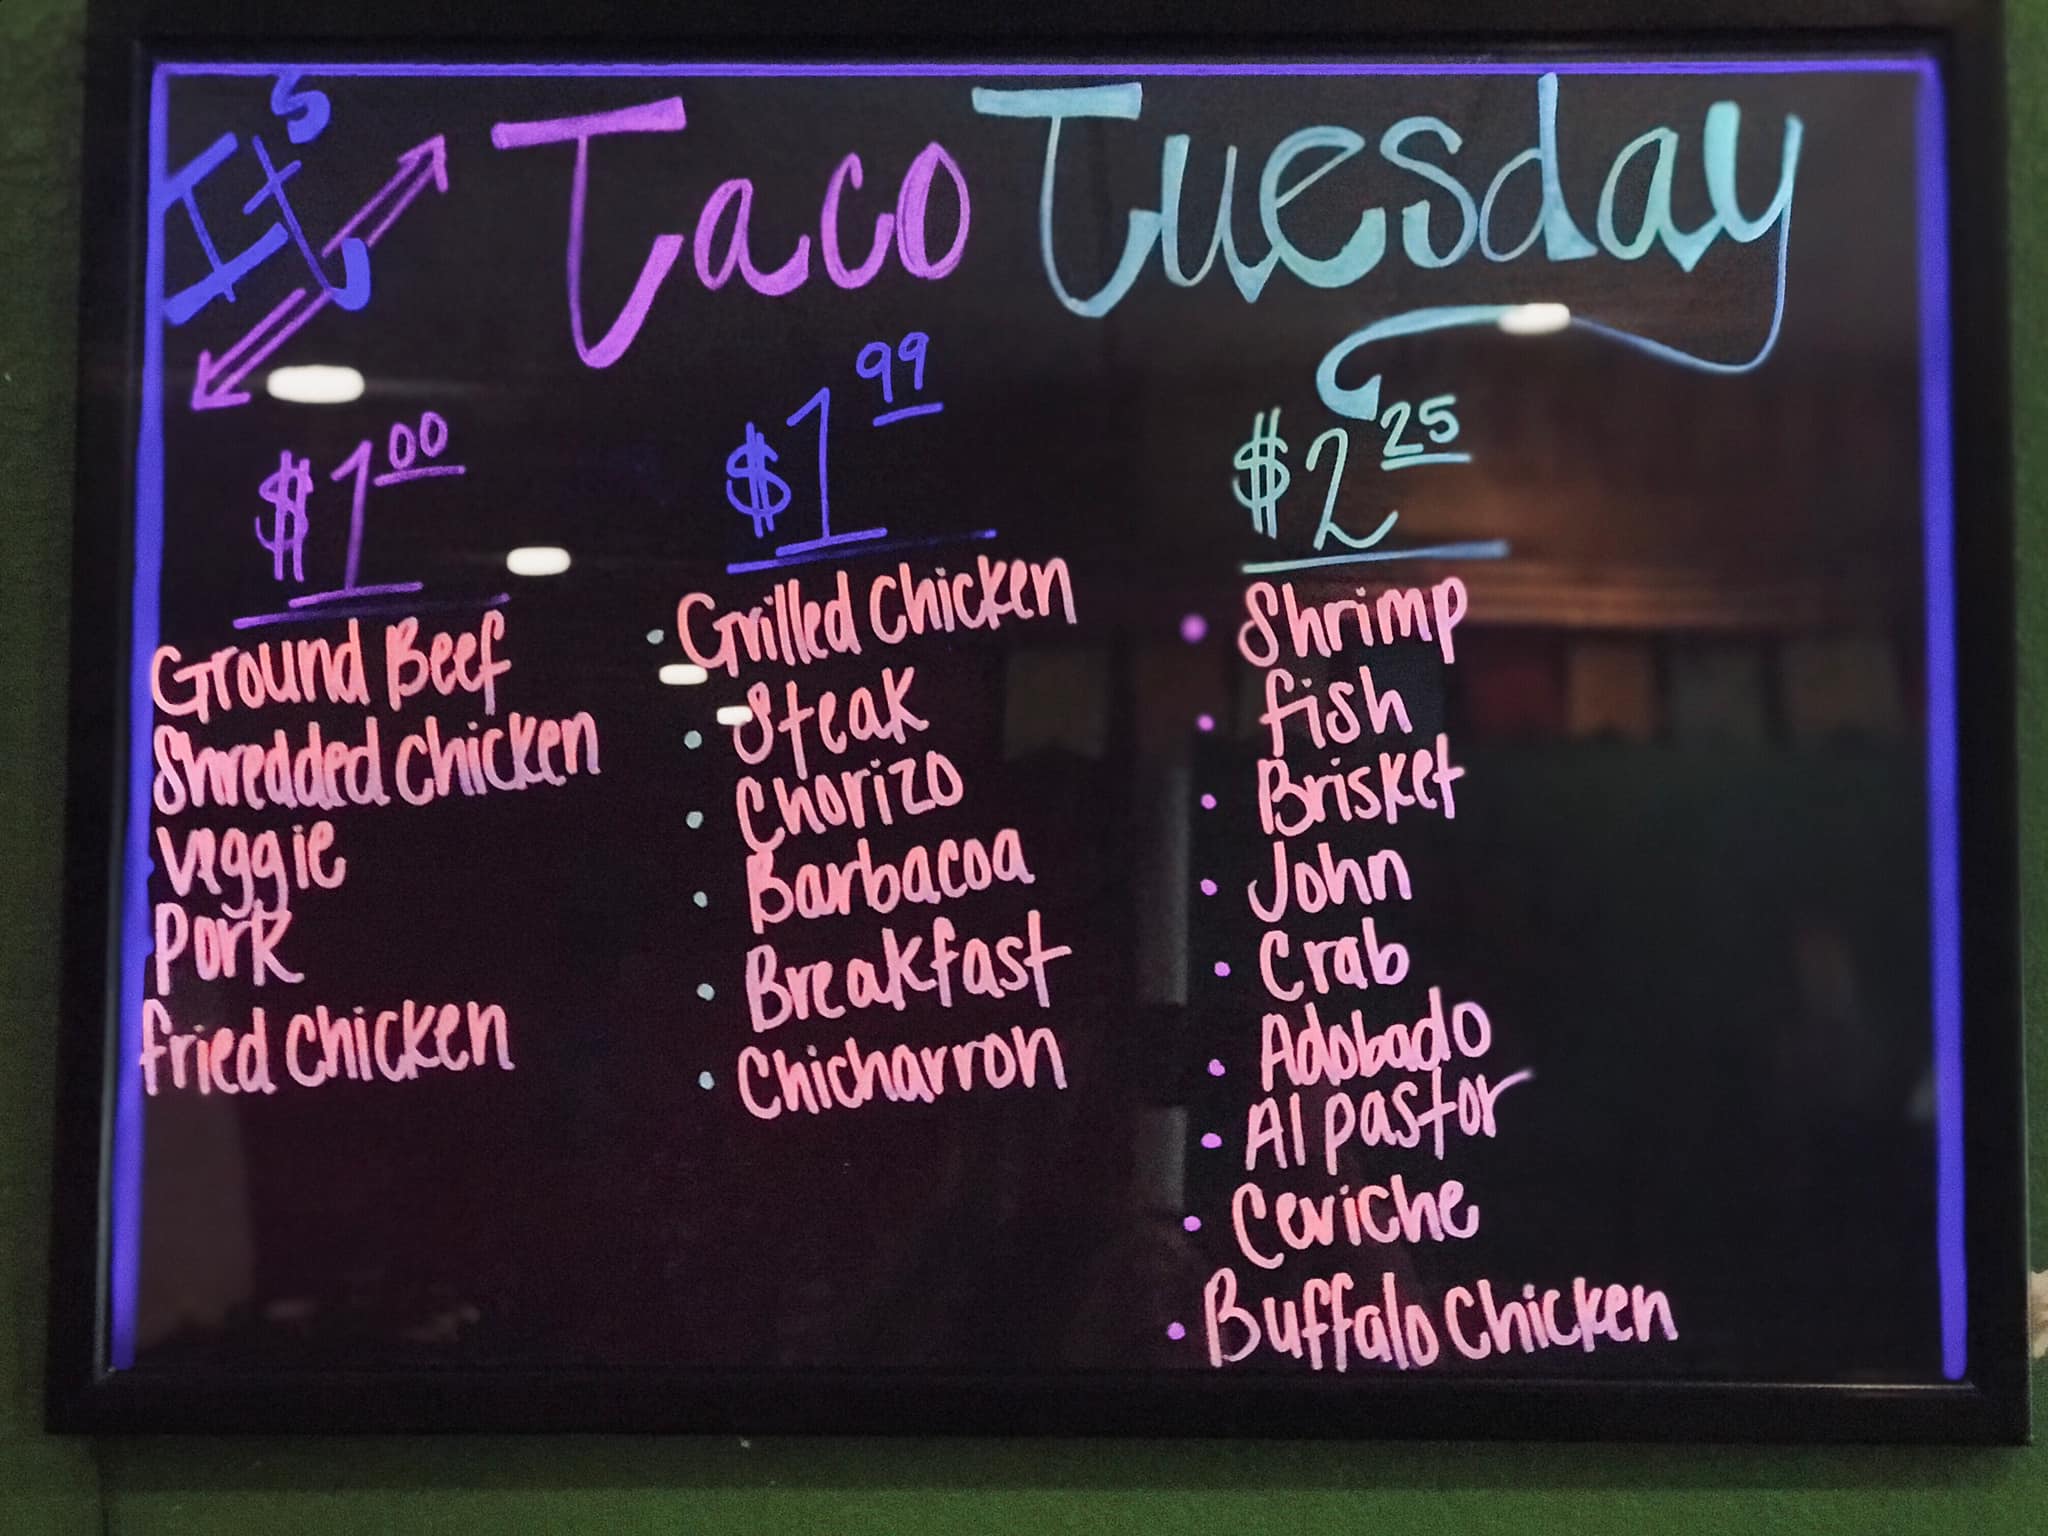 It's Taco Tuesday
$1.00
Ground Beef
Shredded Chicken
Veggie
Pork
Fried Chicken
$1.99
• Grilled Chicken
• Steak
• Chorizo
• Barbacoa
• Breakfast
• Chicharron
$2.25
• Shrimp
• Fish
• Brisket
• John
• Crab
• Adobado
• Al pastor
• Ceviche
• Buffalo Chicken